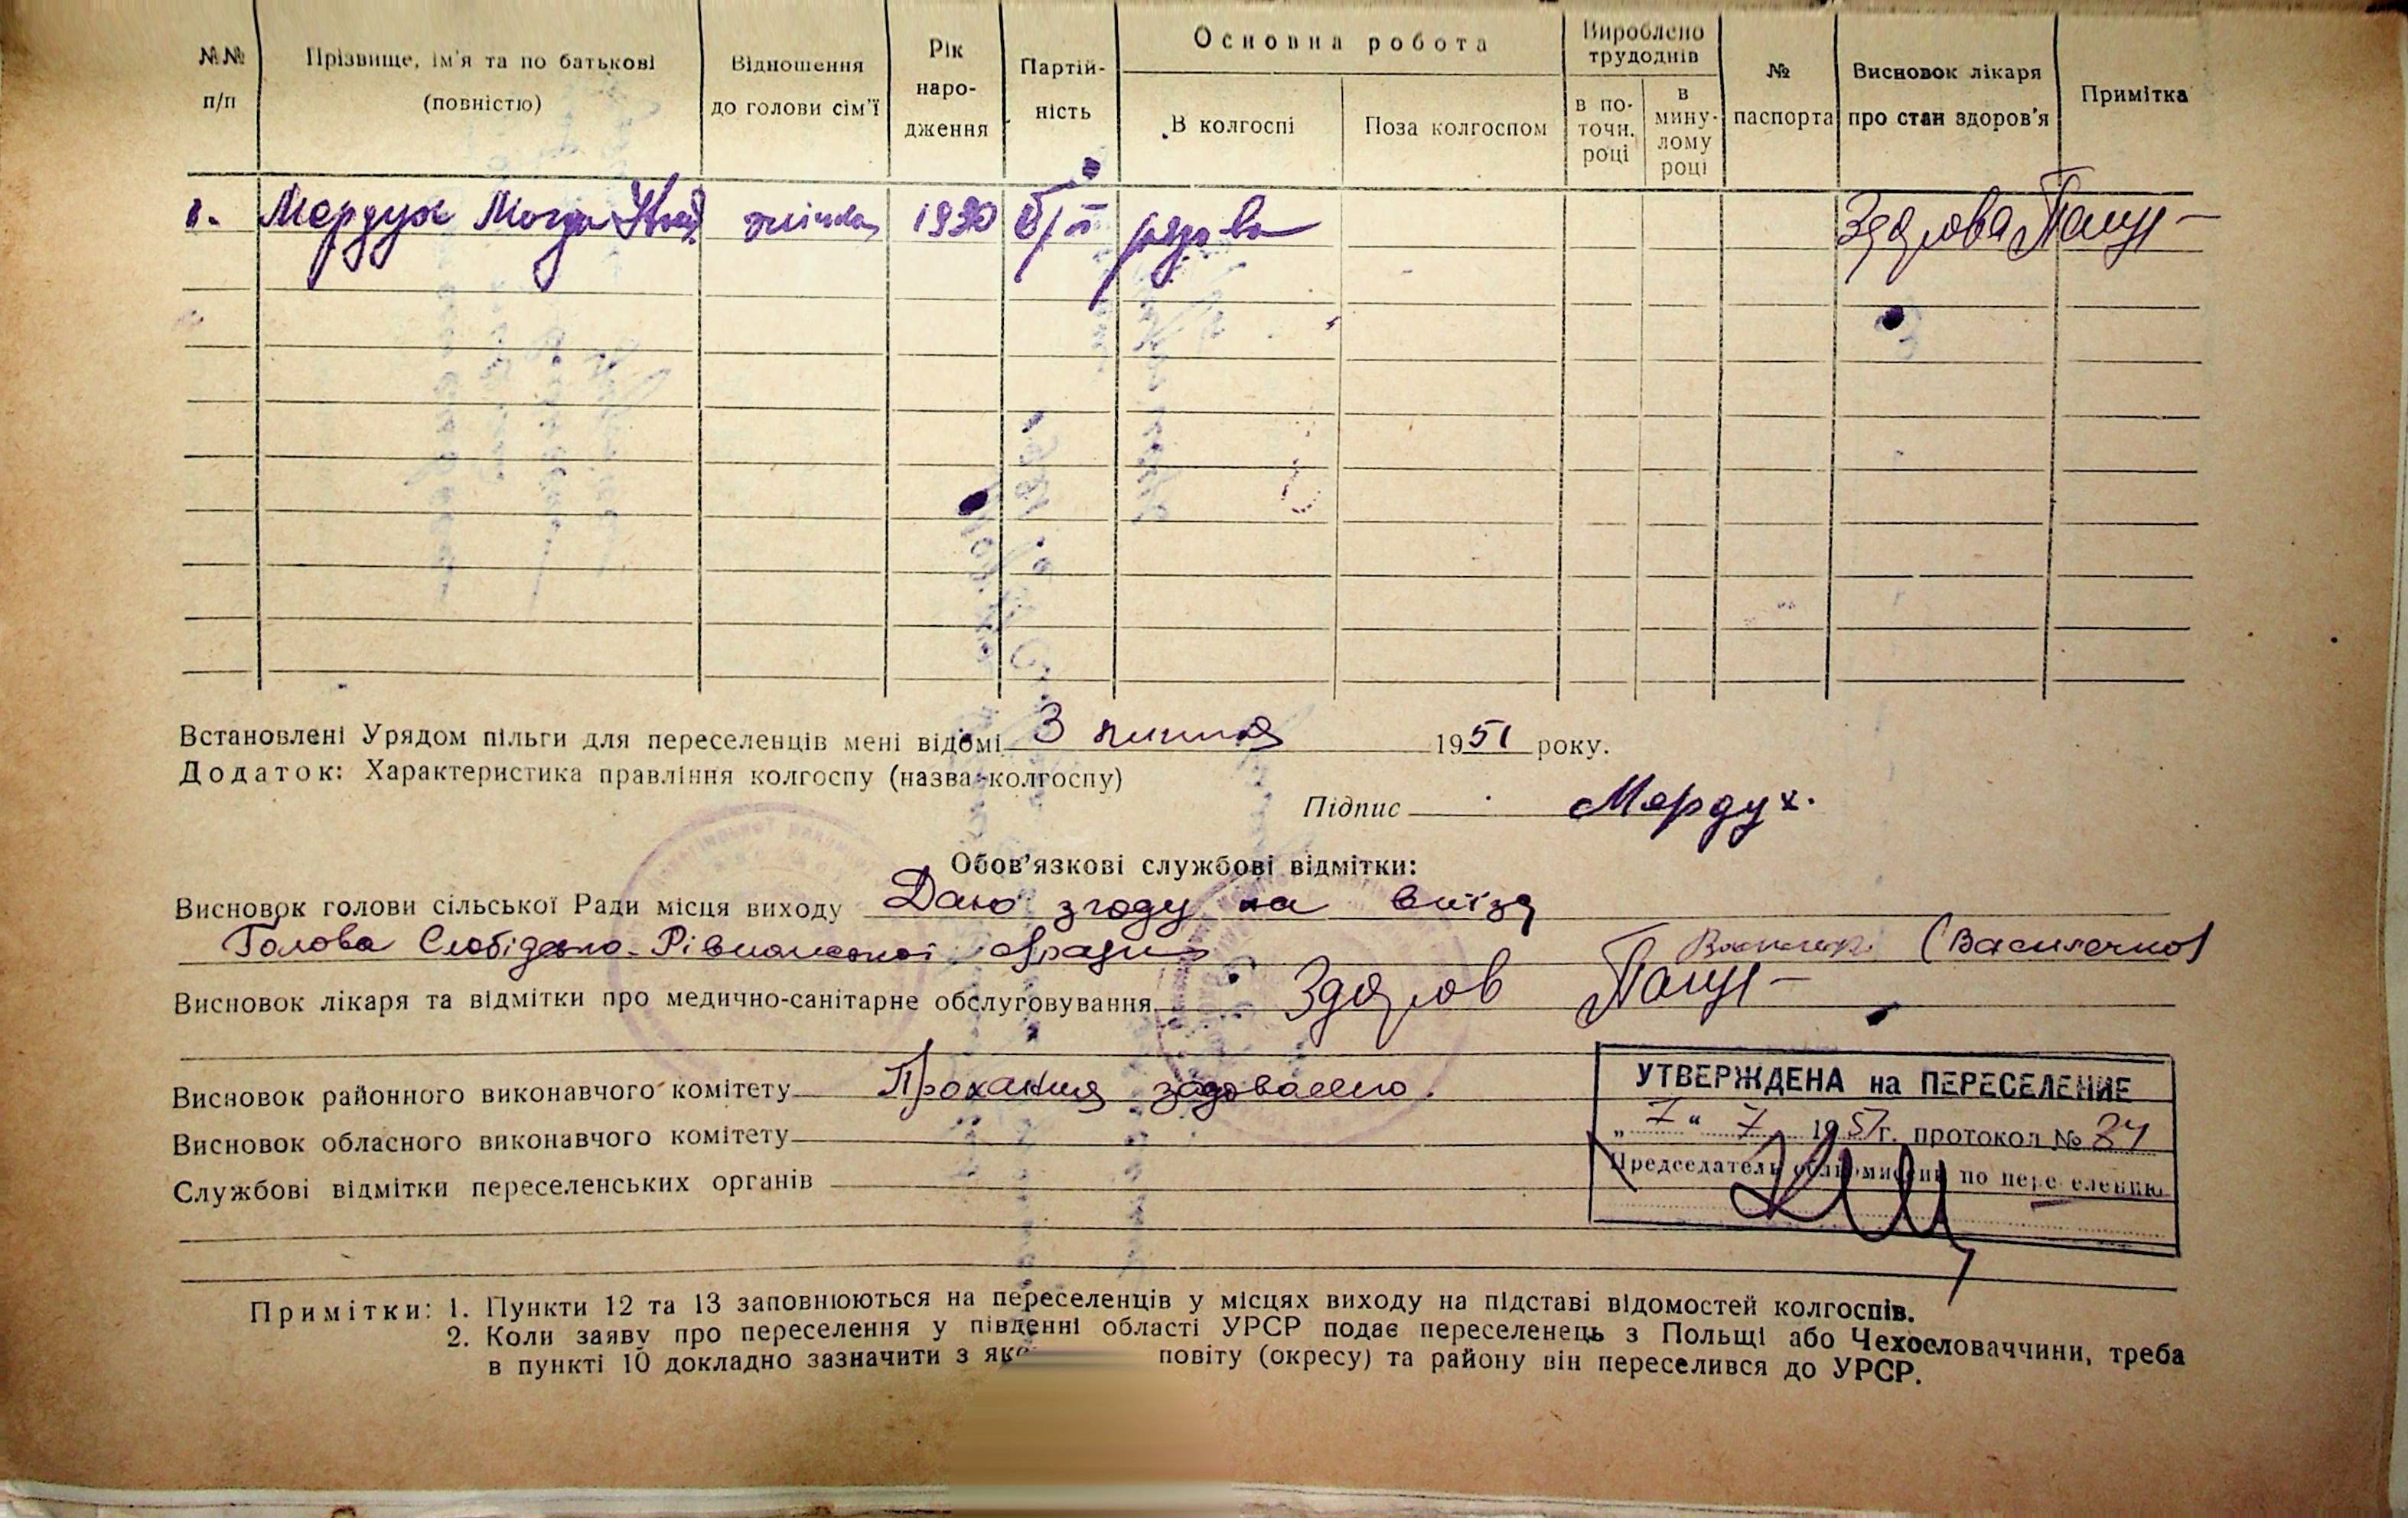 №№ п/п
Прізвище, ім'я та по батькові (повністю)
Відношення до голови сім'ї
Рік народження
Партійність
Основна робота
В колгоспі
Поза колгоспом
Вироблено трудоднів
в поточн. році
в минулому році
№ паспорта
Висновок лікаря про стан здоров'я
Примітка
1. Мердух жінка б/п рядова Здорова
Встановлені Урядом пільги для переселенців мені відомі 3 липня 1951 року.
Додаток: Характеристика правління колгоспу (назва колгоспу)
Підпис Мердух.
Обов'язкові службові відмітки:
Висновок голови сільської Ради місця виходу Даю згоду на виїзд
Голова Слобідсько-Рівнянської с/ради (Василечко)
Висновок лікаря та відмітки про медично-санітарне обслуговування Здоров
Висновок районного виконавчого комітету Прохання задоволено.
Висновок обласного виконавчого комітету
Службові відмітки переселенських органів
УТВЕРЖДЕНА на ПЕРЕСЕЛЕНИЕ
„7“ 7 1951г. протокол №
Председатель облкомиссии по переселению
Примітки: 1. Пункти 12 та 13 заповнюються на переселенців у місцях виходу на підставі відомостей колгоспів.
2. Коли заяву про переселення у південні області УРСР подає переселенець з Польщі або Чехословаччини, треба
в пункті 10 докладно зазначити з повіту (окресу) та району він переселився до УРСР.